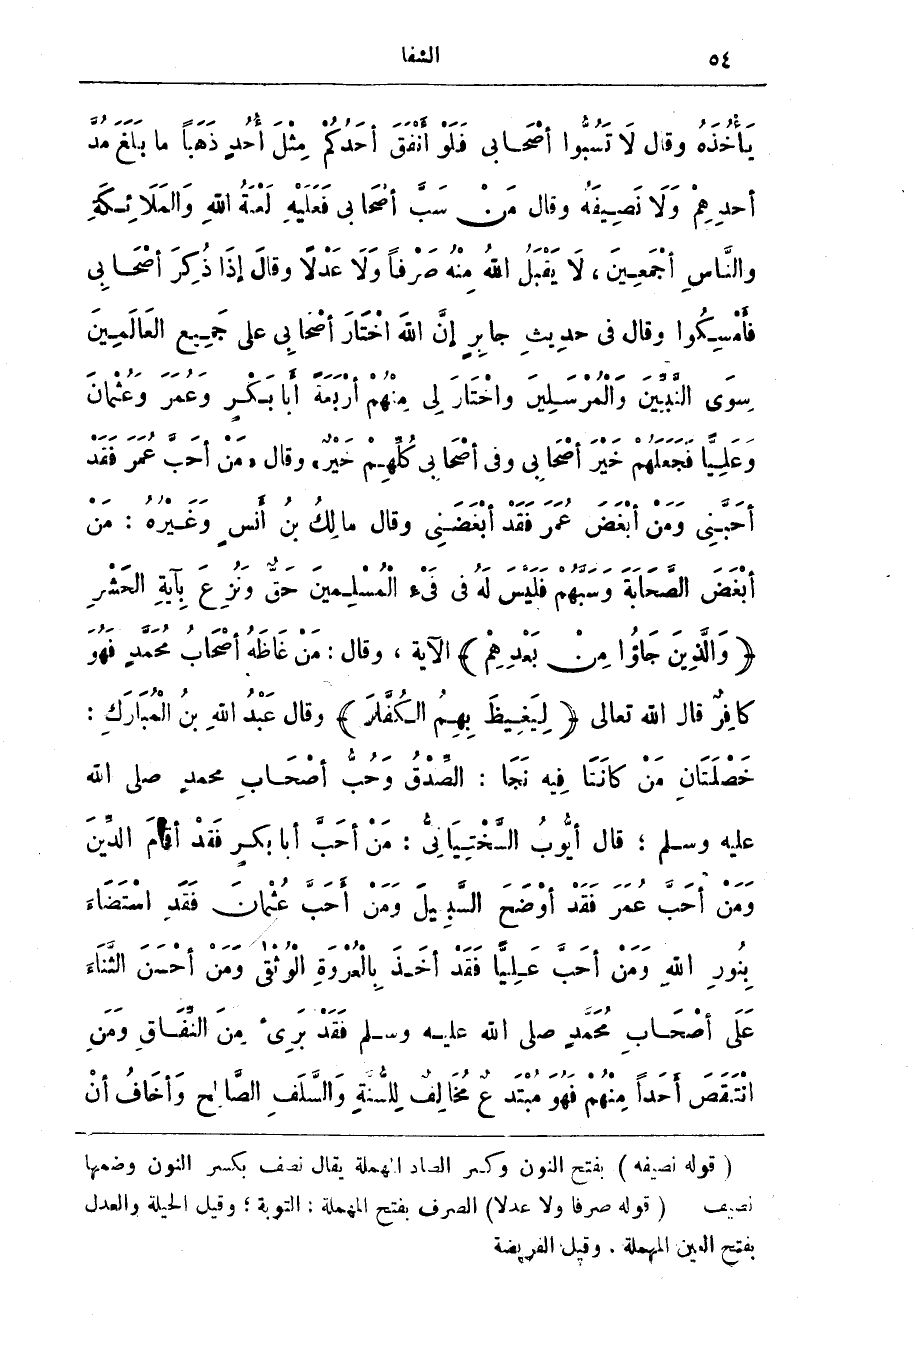 ٥٤
الشفا
يَأْخُذَهُ وقال لَا تَسُبُّوا أَصْحَابِى فَلَوْ أَنْفَقَ أَحَدُكُمْ مِثْلَ أُحُدٍ ذَهَباً ما بَلَغَ مُدَّ
أحدِهِمْ وَلَا نَصِيفَهُ وقال مَنْ سَبَّ أَصْحَابِى فَعَلَيْهِ لَعْنَةُ اللهِ وَالمَلَائِكَةِ
والنَّاسِ أَجْمَعِينَ ، لَا يَقْبَلُ اللهُ مِنْهُ صَرْفاً وَلَا عَدْلًا وقالَ إذَا ذُكِرَ أَصْحَابِى
فَأَمْسِكُوا وقال فى حديثِ جابِرٍ إنَّ اللهَ اخْتَارَ أَصْحَابِى على جَمِيعِ العَالَمِينَ
سِوَى النَّبِيِّينَ وَالْمُرْسَلِينَ واخْتَارَ لِى مِنْهُمْ أَرْبَعَةً أبَا بَكْرٍ وَعُمَرَ وَعُثْمَانَ
وَعَلِيًّا فَجَعَلَهُمْ خَيْرَ أَصْحَابِى وفى أَصْحَابِى كُلِّهِمْ خَيْرٌ، وقال «مَنْ أَحَبَّ عُمَرَ فَقَدْ
أَحَبَّنِى وَمَنْ أَبْغَضَ عُمَرَ فَقَدْ أَبْغَضَنِى وقال مالِكُ بنُ أَنَسٍ وَغَيْرُهُ : مَنْ
أَبْغَضَ الصَّحَابَةَ وَسَبَّهُمْ فَلَيْسَ لَهُ فى فَىْءِ الْمُسْلِمِينَ حَقٌّ وَنُزِعَ بِآيَةِ الحَشْرِ
﴿ وَالَّذِينَ جَاؤُا مِنْ بَعْدِهِمْ ﴾ الآيَةَ ، وقال : مَنْ غَاظَهُ أَصْحَابُ مُحَمَّدٍ فَهُوَ
كافِرٌ قال الله تعالى ﴿ لِيَغِيظَ بِهِمُ الكُفَّارَ ﴾ وقال عَبْدُ اللهِ بنُ الْمُبَارَكِ :
خَصْلَتَانِ مَنْ كَانَتَا فِيهِ نَجَا : الصِّدْقُ وَحُبُّ أَصْحَابِ محمدٍ صلى الله
عليه وسلم ؛ قال أَيُّوبُ السَّخْتِيَانِىُّ : مَنْ أَحَبَّ أبا بكرٍ فَقَدْ أَقَامَ الدِّينَ
وَمَنْ أَحَبَّ عُمَرَ فَقَدْ أَوْضَحَ السَّبِيلَ وَمَنْ أَحَبَّ عُثْمَانَ فَقَدِ اسْتَضَاءَ
بِنُورِ اللهِ وَمَنْ أَحَبَّ عَلِيًّا فَقَدْ أَخَذَ بِالْعُرْوَةِ الْوُثْقَى وَمَنْ أَحْسَنَ الثَّنَاءَ
عَلَى أَصْحَابِ مُحَمَّدٍ صلى الله عليه وسلم فَقَدْ بَرِىءَ مِنَ النِّفَاقِ وَمَنِ
انْتَقَصَ أَحَداً مِنْهُمْ فَهُوَ مُبْتَدِعٌ مُخَالِفٌ لِلسُّنَّةِ وَالسَّلَفِ الصَّالِحِ وَأَخَافُ أَنْ
( قوله نصيفه ) بفتح النون وكسر الصاد المهملة يقال نصف بكسر النون وضمها
نصيف ( قوله صرفا ولا عدلا) الصرف بفتح المهملة : التوبة ؛ وقيل الحيلة والعدل
بفتح العين المهملة . وقيل الفريضة